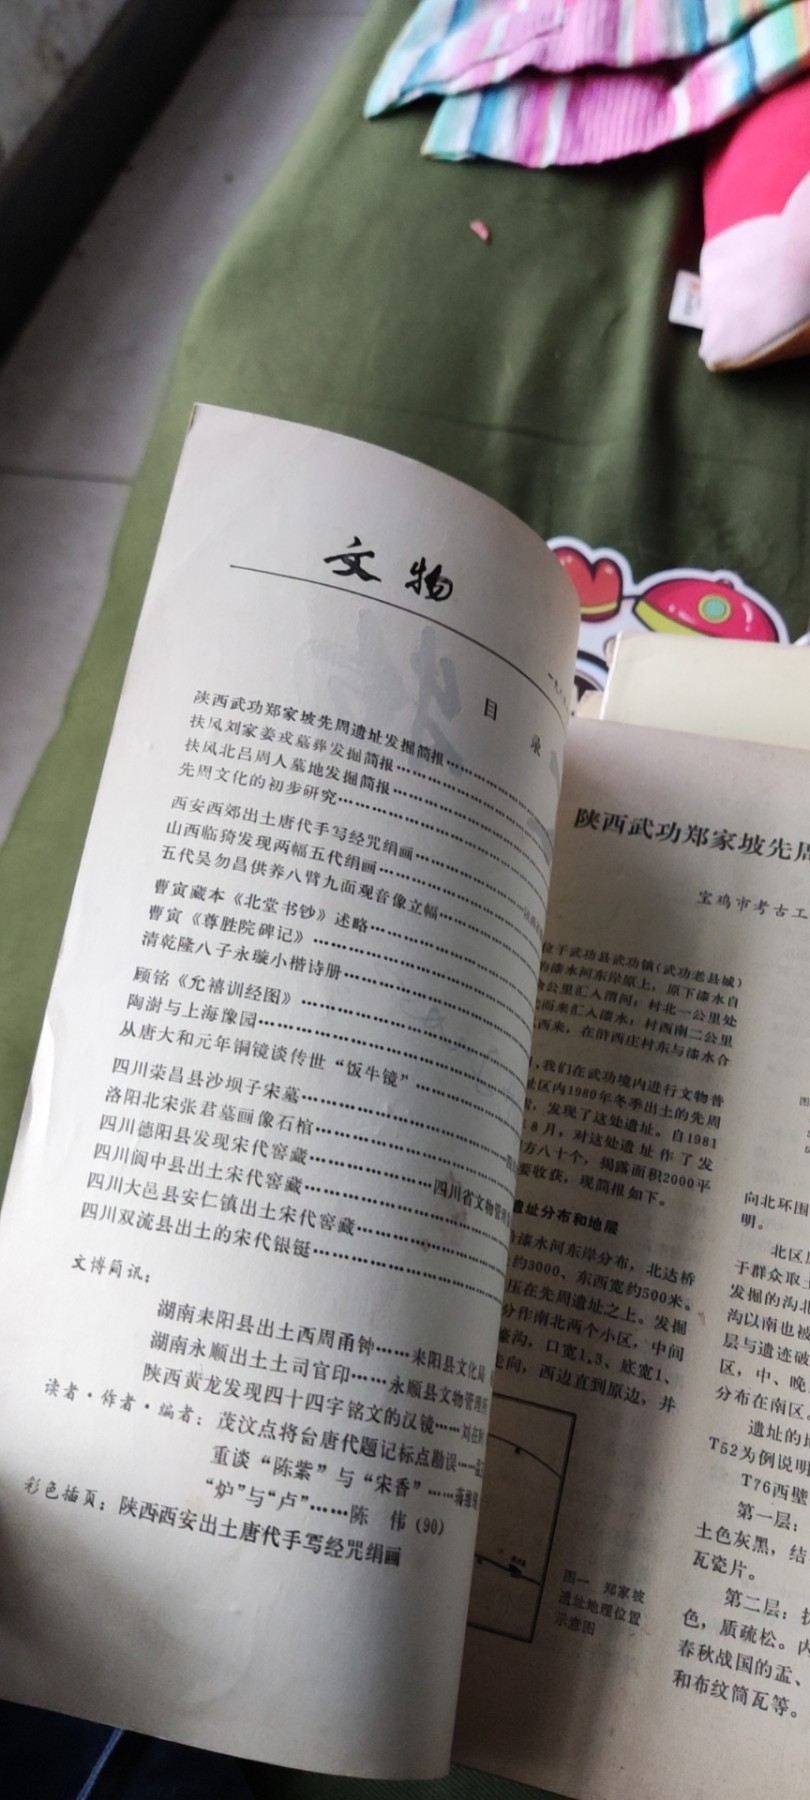 文物
目录
陕西武功郑家坡先周遗址发掘简报
扶风刘家姜戎墓葬发掘简报
扶风北吕周人墓地发掘简报
先周文化的初步研究
西安西郊出土唐代手写经咒绢画
山西临猗发现两幅五代绢画
五代吴勿昌供养八臂九面观音像立幅
曹寅藏本《北堂书钞》述略
曹寅《尊胜院碑记》
清乾隆八子永璇小楷诗册
顾铭《允禧训经图》
陶澍与上海豫园
从唐大和元年铜镜谈传世“饭牛镜”
四川荣昌县沙坝子宋墓
洛阳北宋张君墓画像石棺
四川德阳县发现宋代窖藏
四川阆中县出土宋代窖藏……四川省文物管
四川大邑县安仁镇出土宋代窖藏
四川双流县出土的宋代银铤
文博简讯：
湖南耒阳县出土西周甬钟……耒阳县文化局
湖南永顺出土土司官印……永顺县文物管理所
陕西黄龙发现四十四字铭文的汉镜……刘
读者·作者·编者：茂汶点将台唐代题记标点勘误
重谈“陈紫”与“宋香”
“炉”与“卢”……陈 伟（90）
彩色插页：陕西西安出土唐代手写经咒绢画
陕西武功郑家坡先周
宝鸡市考古工
位于武功县武功镇（武功老县城）
漆水河东岸原上，原下漆水自
公里汇入渭河；村北一公里处
而来汇入漆水，村西南二公里
西来，在浒西庄村东与漆水合
，我们在武功境内进行文物普
区内1980年冬季出土的先周
，发现了这处遗址。自1981
8月，对这处遗址作了发
方八十个，揭露面积2000平
要收获，现简报如下。
遗址分布和地层
漆水河东岸分布，北达桥
约3000、东西宽约500米。
压在先周遗址之上。发掘
分作南北两个小区，中间
壕沟，口宽1.3、底宽1、
走向，西边直到原边，并
图一 郑家坡
遗址地理位置
示意图
向北环围
明。
北区
于群众取土
发掘的沟北
沟以南也被
层与遗迹破
区，中、晚
分布在南区。
遗址的
T52为例说明
T76西壁
第一层：
土色灰黑，结
瓦瓷片。
第二层：扰
色，质疏松。内
春秋战国的盂、
和布纹筒瓦等。